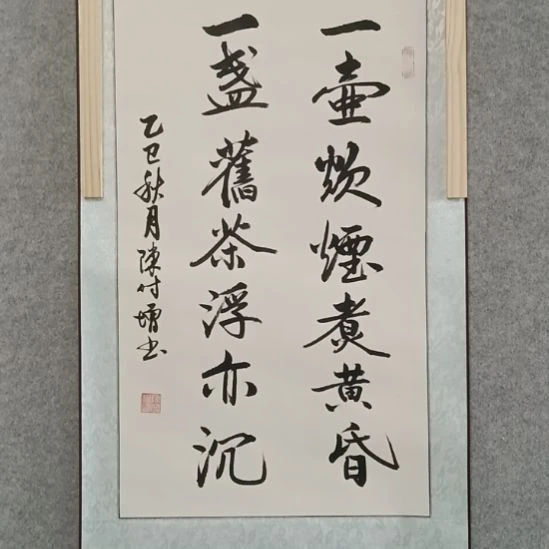 一壺炊煙煮黄昏
一盞舊茶浮亦沉
乙巳秋月陳付增书